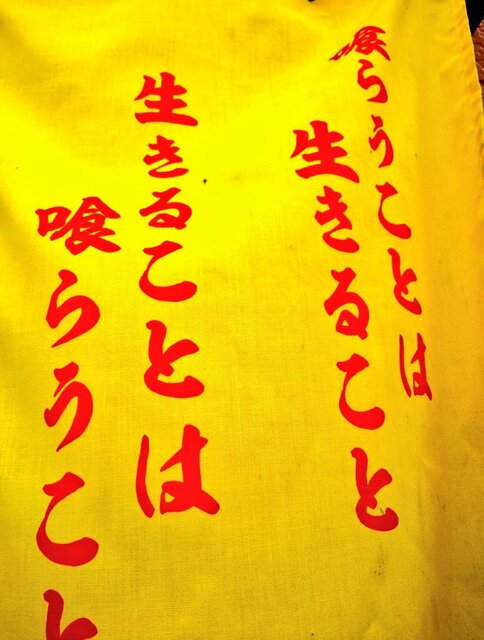 喰らうことは
生きること
生きることは
喰らうこと